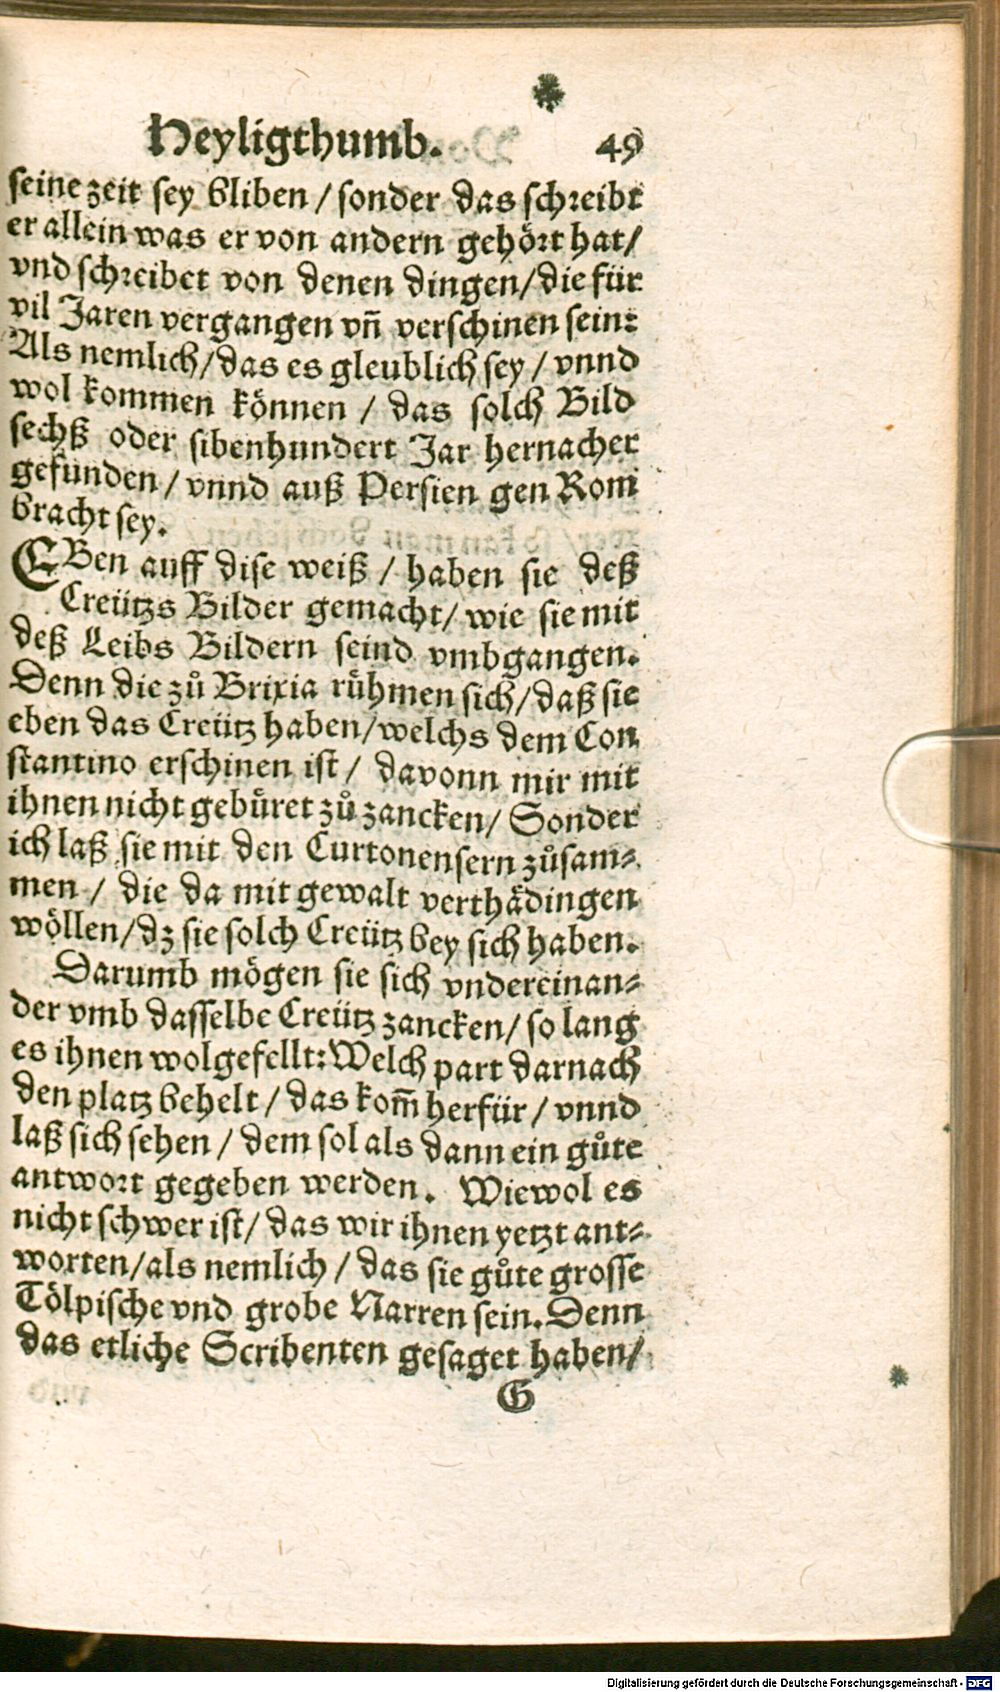 Heyligthumb. 49
seine zeit sey bliben / sonder das schreibt
er allein was er von andern gehört hat /
vnd schreibet von denen dingen / die für
vil Jaren vergangen vñ verschinen sein:
Als nemlich / das es gleublich sey / vnnd
wol kommen können / das solch Bild
sechß oder sibenhundert Jar hernacher
gefunden / vnnd auß Persien gen Rom
bracht sey.
EBen auff dise weiß / haben sie deß
Creützs Bilder gemacht / wie sie mit
deß Leibs Bildern seind vmbgangen.
Denn die zů Brixia rühmen sich / daß sie
eben das Creütz haben / welchs dem Con
stantino erschinen ist / davonn mir mit
ihnen nicht gebüret zů zancken / Sonder
ich laß sie mit den Curtonensern zůsam⸗
men / die da mit gewalt verthädingen
wöllen / dz sie solch Creütz bey sich haben.
Darumb mögen sie sich vndereinan⸗
der vmb dasselbe Creütz zancken / so lang
es ihnen wolgefellt: Welch part darnach
den platz behelt / das kom̃ herfür / vnnd
laß sich sehen / dem sol als dann ein gůte
antwort gegeben werden. Wiewol es
nicht schwer ist / das wir ihnen yetzt ant⸗
worten / als nemlich / das sie gůte grosse
Tölpische vnd grobe Narren sein. Denn
das etliche Scribenten gesaget haben /
G
Digitalisierung gefördert durch die Deutsche Forschungsgemeinschaft - DFG